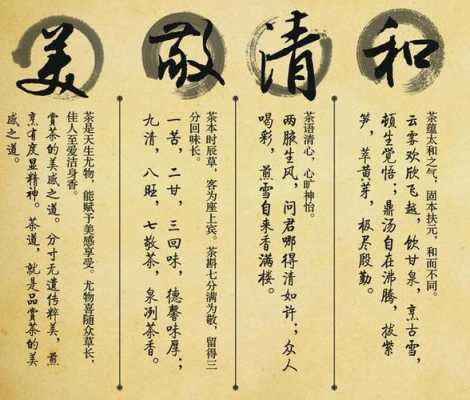 和
茶蕴太和之气，固本扶元，和而不同。
云雾欢欣飞越，饮甘泉，烹古雪，
顿生觉悟；鼎汤自在沸腾，拔紫
笋，苹黄芽，极尽殷勤。
清
茶语清心，心旷神怡。
两腋生风，问君哪得清如许；众人
喝彩，煎雪自来香满楼。
敬
茶本时辰草，客为座上宾。茶斟七分满为敬，留得三
分回味长。
一苦，二甘，三回味，德馨味厚；
九清，八旺，七敬茶，泉冽茶香。
美
茶是天生尤物，能赋予美感享受。尤物喜随众草长，
佳人至爱洁身香。
赏茶的美感之道。分寸无遗传粹美，煎
烹有度显精神。茶道，就是品赏茶的美
感之道。